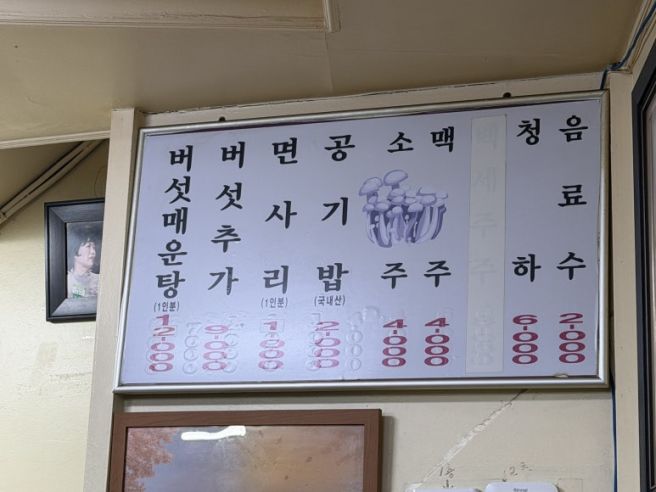 버섯매운탕
(1인분)
12000
버섯추가
9000
면사리
(1인분)
1000
공기밥
(국내산)
2000
소주
4000
맥주
4000
청하
6000
음료수
2000